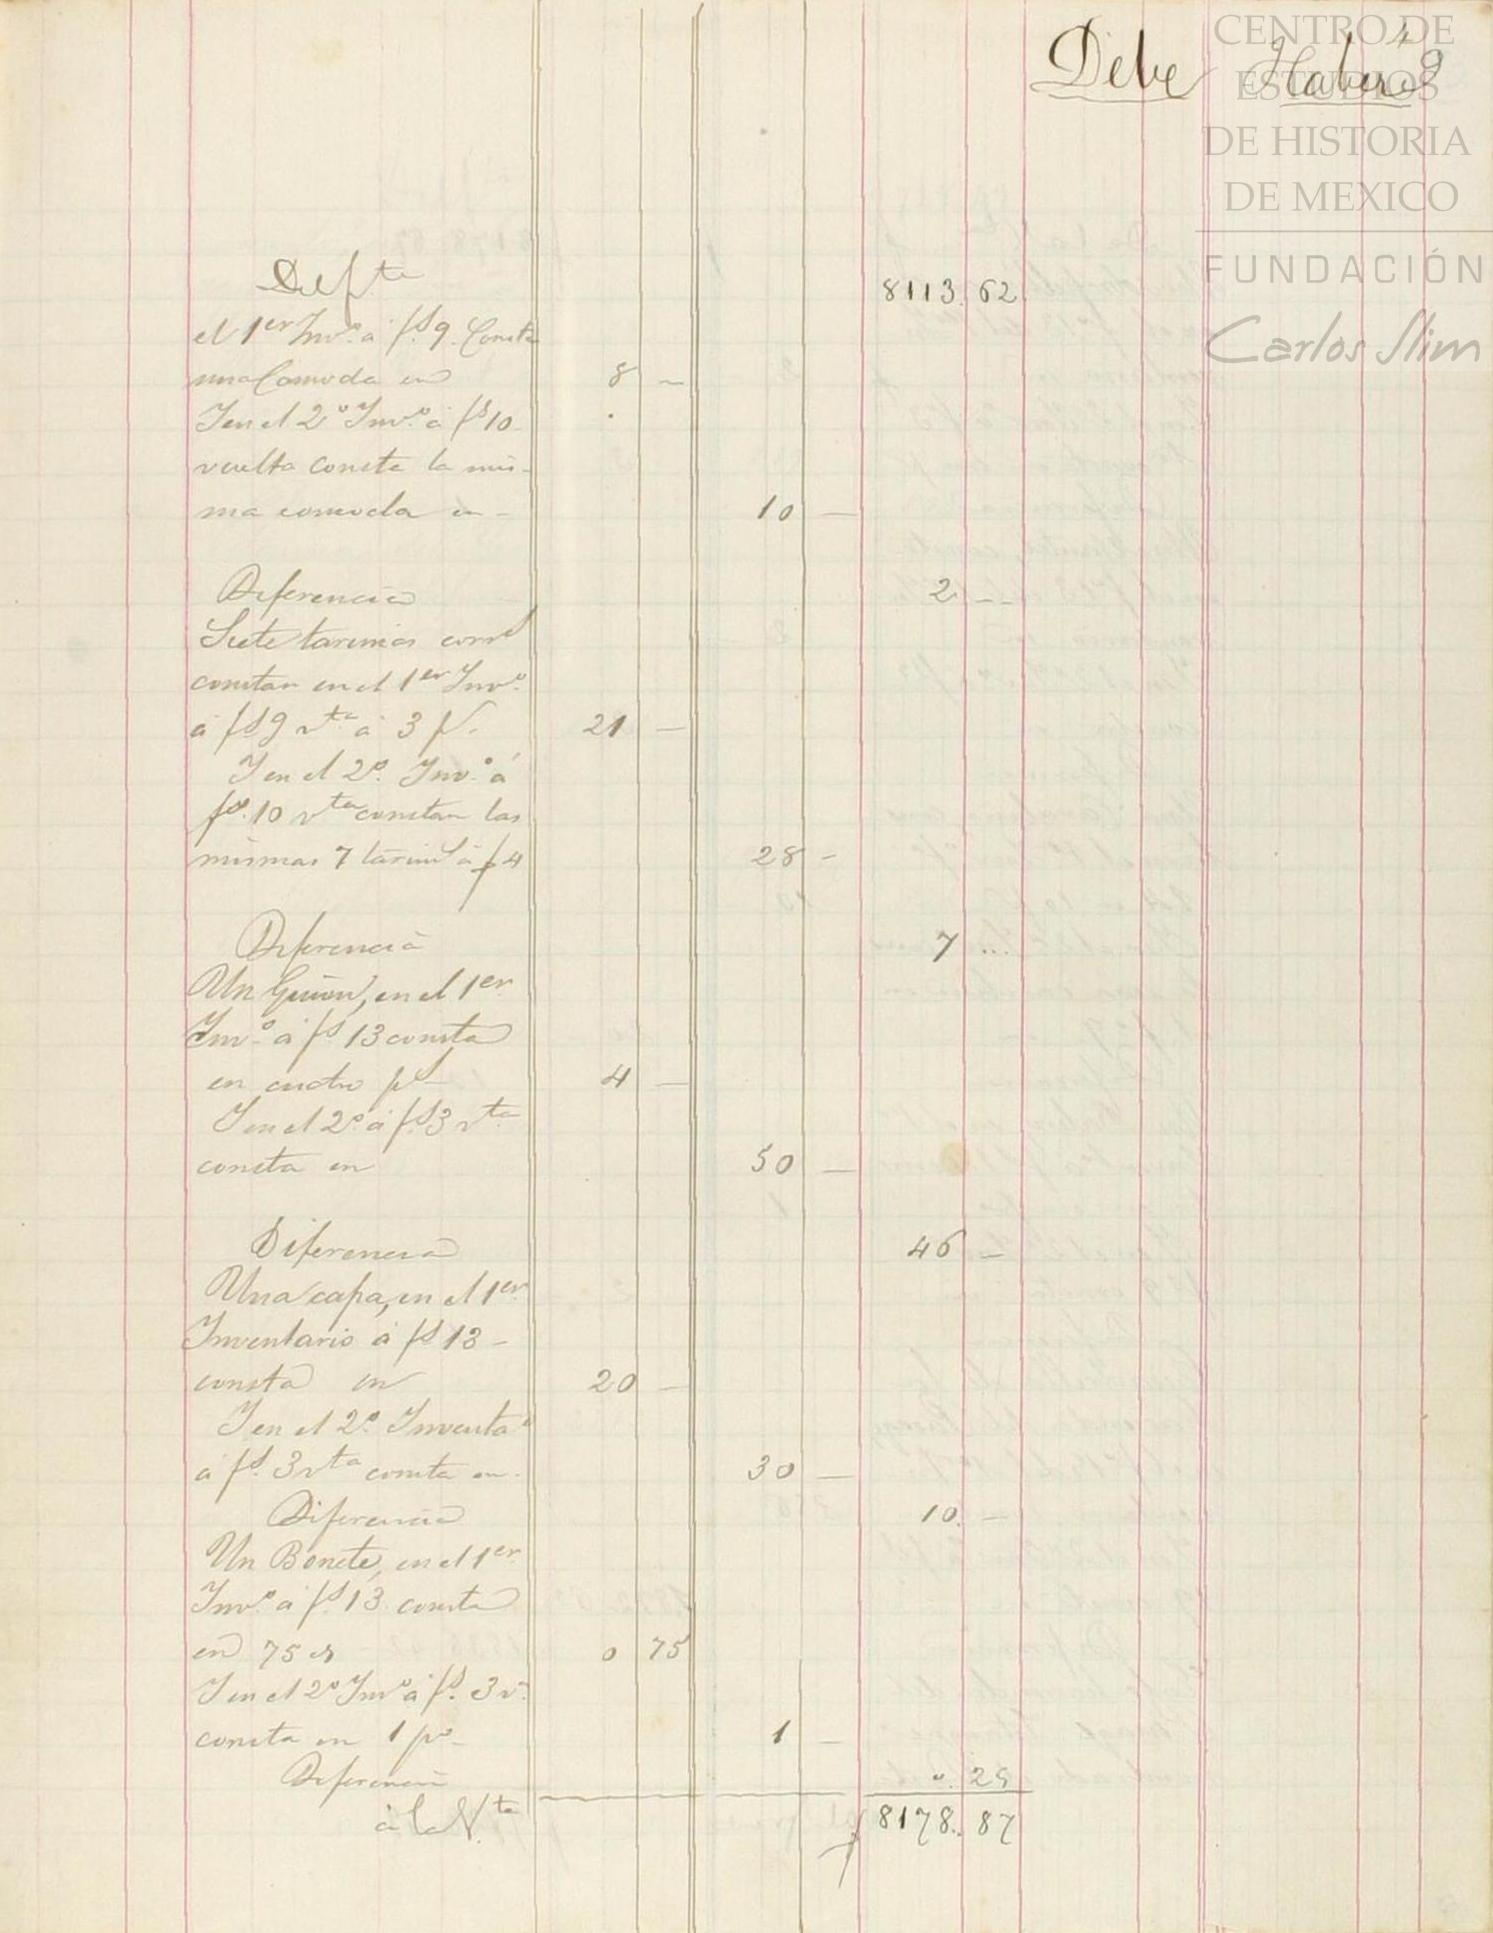 Debe Haber
CENTRO DE
ESTUDIOS
DE HISTORIA
DE MEXICO
FUNDACIÓN
Carlos Slim
Del fte 8113. 62
el 1er Invo. á fs. 9. Consta
una Comoda en 8 —
I en el 2o Invo. á fs 10
vuelta consta la mis-
ma comoda en - 10 —
Diferencia 2 --
Siete tarimas
constan en el 1er Invo.
á fs 9 vta á 3 ps. 21 —
I en el 2o. Invo. á
fs. 10 vta constan las
mismas 7 tarims á $4 28 -
Diferencia 7 ...
Un Guion, en el 1er
Invo. á fs 13 consta
en cuatro ps 4 —
I en el 2o. á fs. 3 vta
consta en 50 —
Diferencia 46 —
Una capa, en el 1er
Inventario á fs 13 -
consta en 20 —
I en el 2o. Inventao
á fs. 3 vta consta en. 30 —
Diferencia 10. —
Un Bonete, en el 1er
Invo. á fs. 13 consta
en 75 cs 0 75
I en el 2o Invo á fs. 3 v.
consta en 1 po- 1 —
Diferencia 0. 25
á la Vta. $ 8178. 87